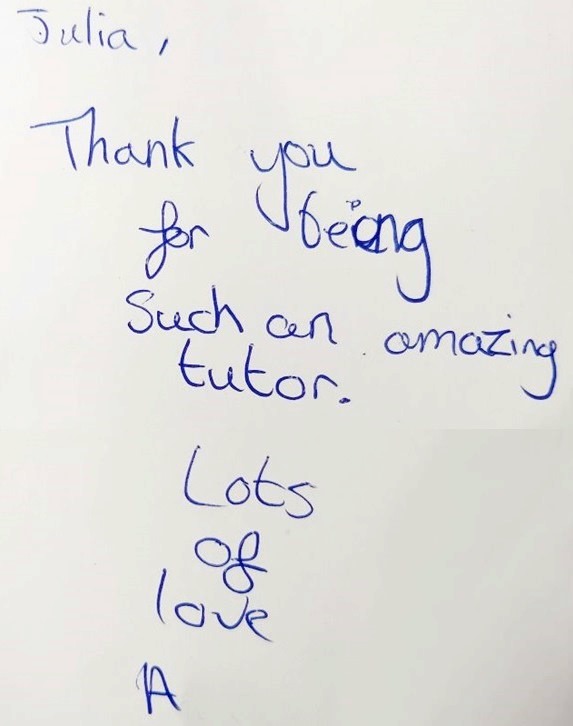 Julia,
Thank you
for being
Such an amazing
tutor.
Lots
of
love
A